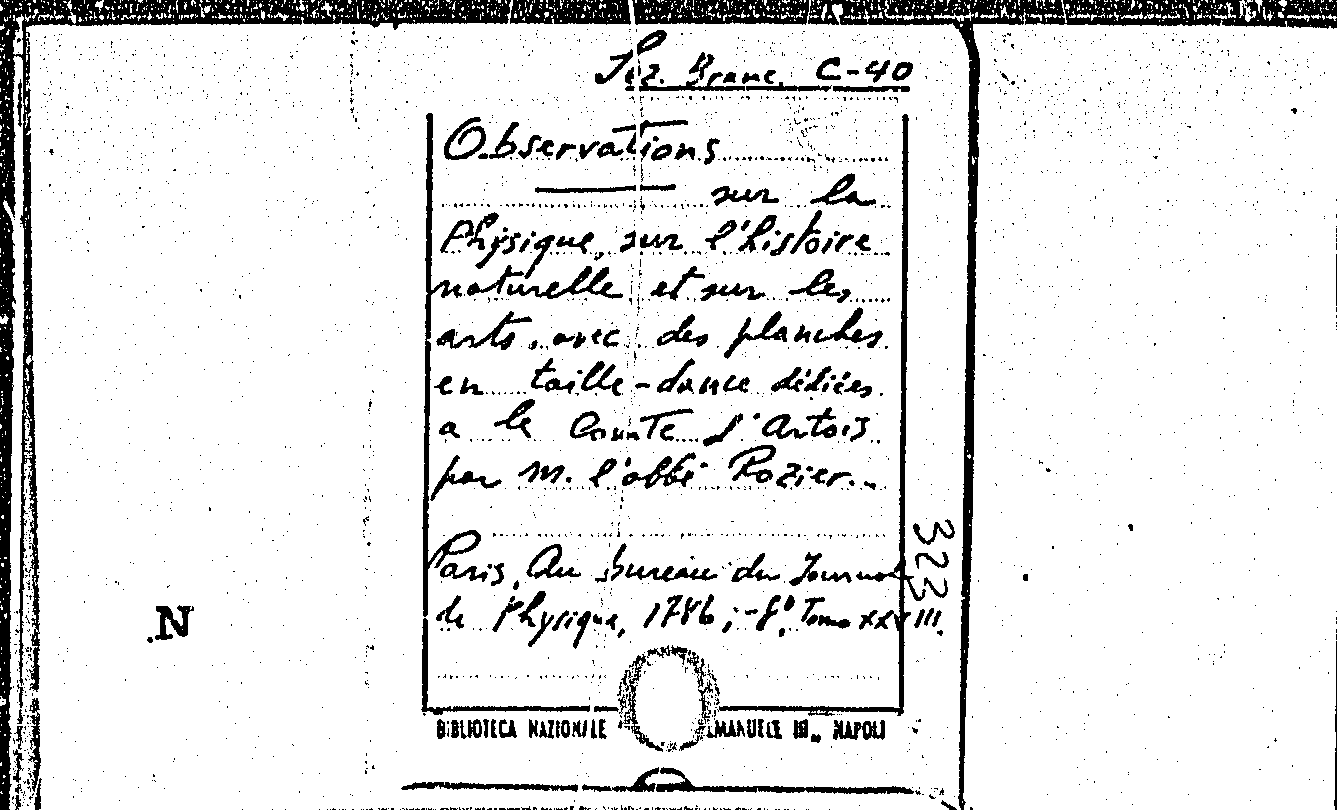 Sez. Branc. C-40
Observations
sur la
Physique, sur l'histoire
naturelle et sur les
arts, avec des planches
en taille-douce dédiées
a le Comte d'Artois
par M. l'abbé Rozier..
Paris, Au bureau du Journal
de Physique, 1786; -8º, Tomo XXVIII.
323
N
BIBLIOTECA NAZIONALE EMANUELE III„ NAPOLI